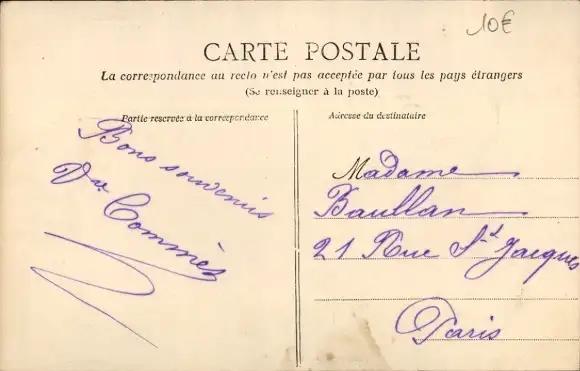 10€
CARTE POSTALE
La correspondance au recto n'est pas acceptée par tous les pays étrangers
(Se renseigner à la poste)
Partie reservée à la correspondance
Adresse du destinataire
Bons souvenirs
Commès
Madame
Baullan
21 Rue St Jacques
Paris